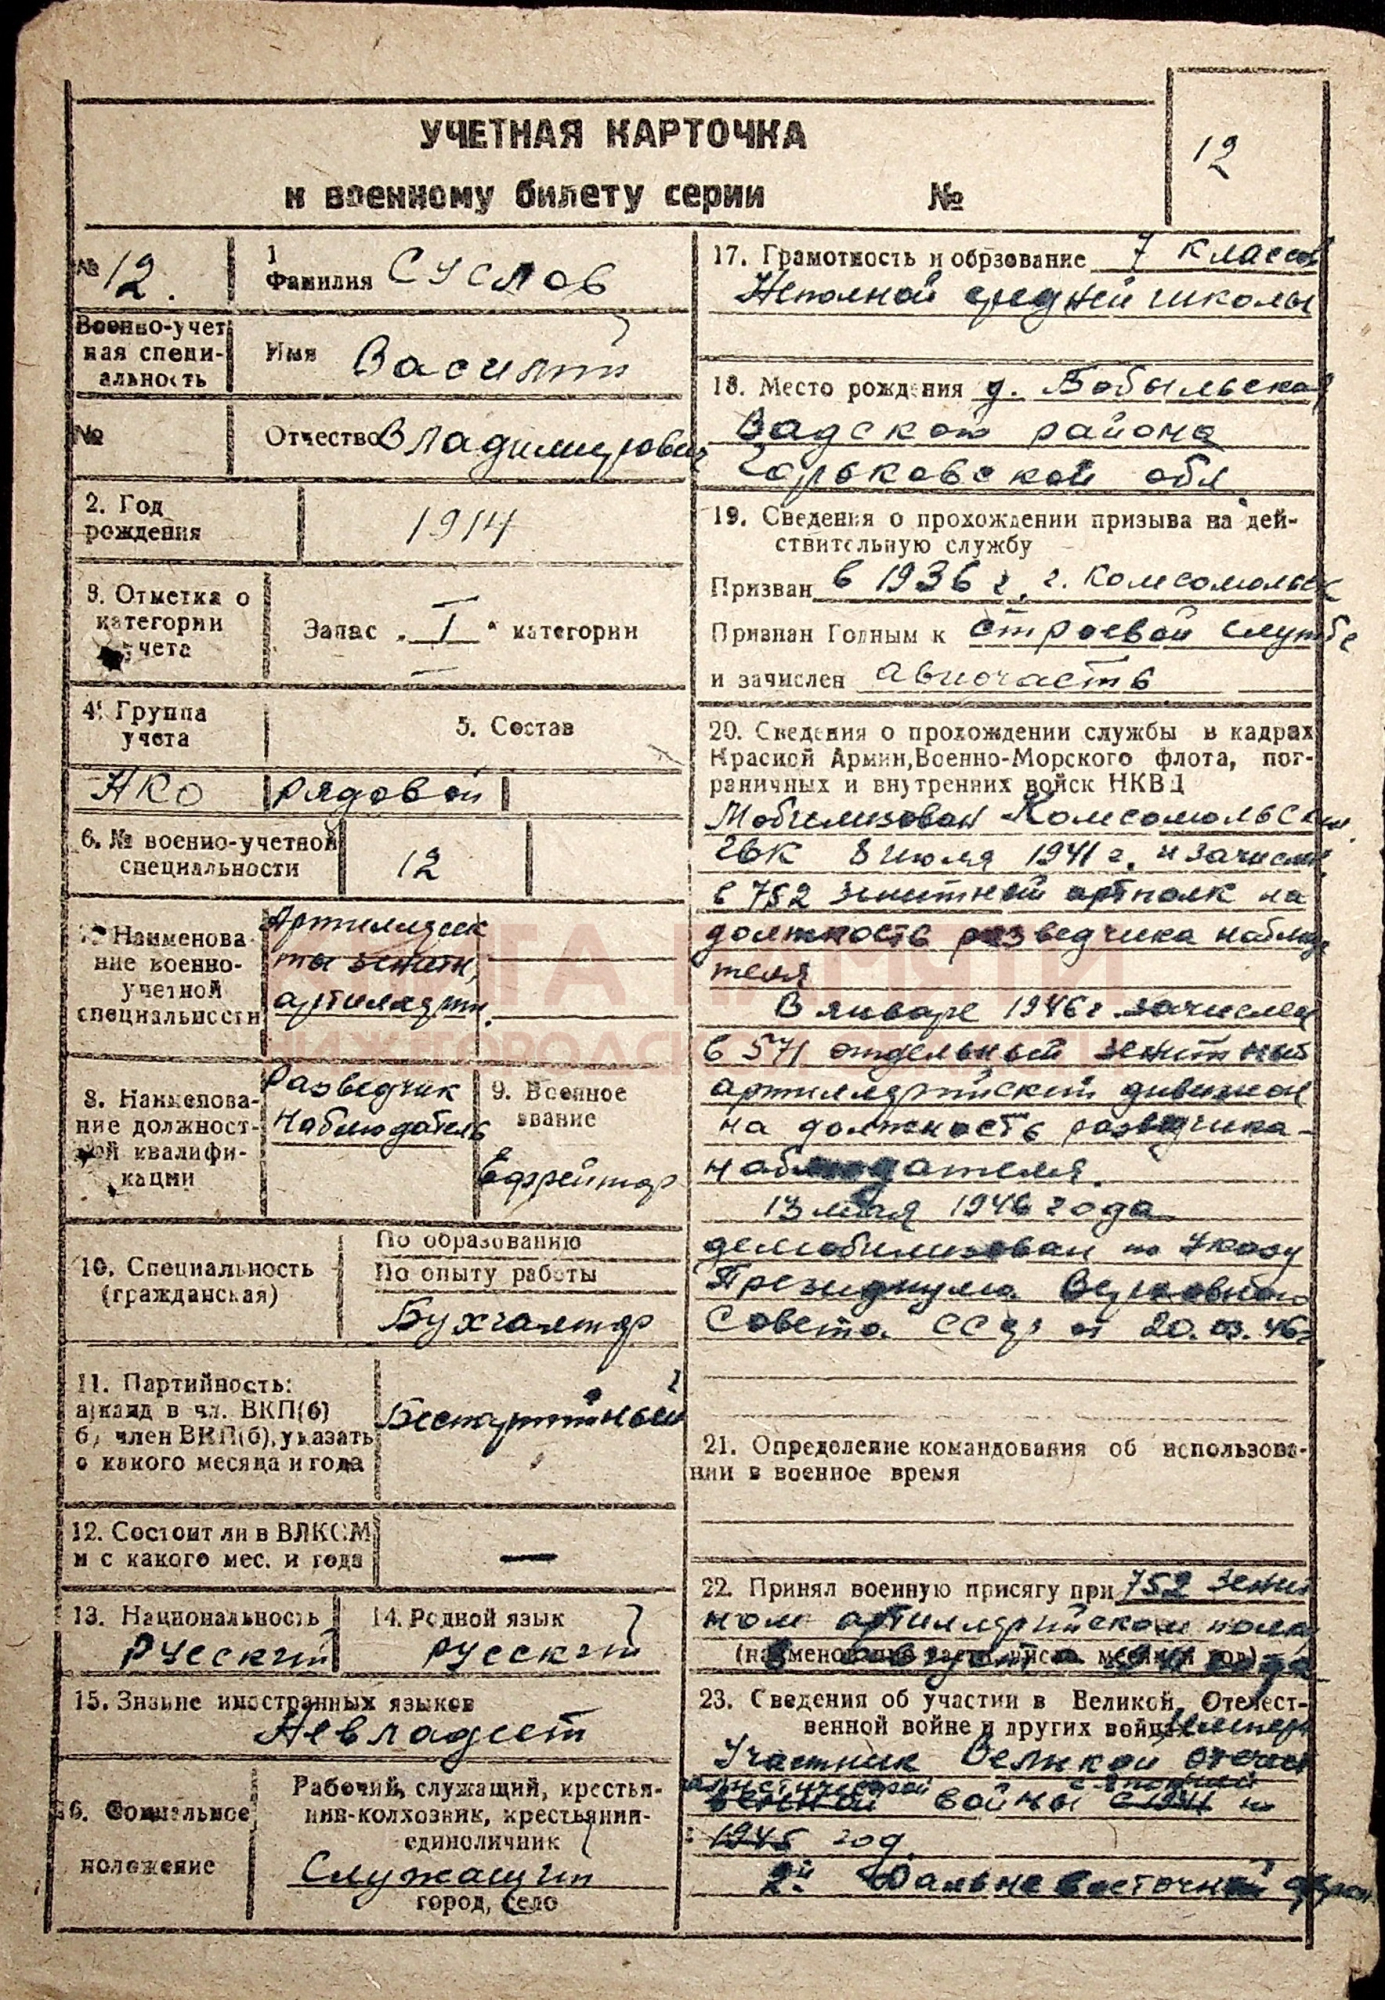 УЧЕТНАЯ КАРТОЧКА
к военному билету серии №
12
№ 12.
1 Фамилия Суслов
Военно-учетная специальность
Имя Василий
№
Отчество Владимирович
2. Год
рождения
1914
3. Отметка о
категории
учета
Запас „ I " категории
4. Группа
учета
5. Состав
АКО
рядовой
6. № военно-учетной
специальности
12
7. Наименова-
ние военно-
учетной
специальности
Артиллерис
ты зенитн.
артиллерии.
8. Наименова-
ние должност-
ной квалифи-
кации
Разведчик
наблюдатель
9. Военное
звание
Ефрейтор
10. Специальность
(гражданская)
По образованию
По опыту работы
Бухгалтер
11. Партийность:
а) канд в чл. ВКП(б)
б) член ВКП(б), указать
с какого месяца и года
Беспартийный
12. Состоит ли в ВЛКСМ
и с какого мес. и года
—
13. Национальность
Русский
14. Родной язык
Русский
15. Знание иностранных языков
Не владеет
16. Социальное
положение
Рабочий, служащий, крестья-
нин-колхозник, крестьянин-
единоличник
Служащий
город, село
17. Грамотность и обрзование 7 классов
Неполной средней школы
18. Место рождения д. Бобыльская
Вадского района
Горьковской обл.
19. Сведения о прохождении призыва на дей-
ствительную службу
Призван в 1936 г. г. Комсомольск
Признан Годным к строевой службе
и зачислен авиочасть
20. Сведения о прохождении службы в кадрах
Красной Армии, Военно-Морского флота, пог-
раничных и внутренних войск НКВД
Мобилизован Комсомольским
ГВК 8 июля 1941 г. и зачислен
в 752 зенитный артполк на
должность разведчика наблюда
теля
В январе 1946 г зачислен
в 571 отдельный зенитный
артиллерийский дивизион
на должность разведчика-
наблюдателя.
13 мая 1946 года
демобилизован по Указу
Президиума Верховного
Совета СССР от 20.03.46 г.
21. Определение командования об использова-
нии в военное время
22. Принял военную присягу при 752 зенит
ном артиллерийском полку
(наименование части, числа месяц и год)
1941 года
23. Сведения об участии в Великой Отечест-
венной войне и других войнах Импери
Участник Великой отечест
алистической с Японией
венной войны с 1941 по
1945 год
2й Дальневосточный фрон
КНИГА ПАМЯТИ
НИЖЕГОРОДСКОЙ ОБЛАСТИ